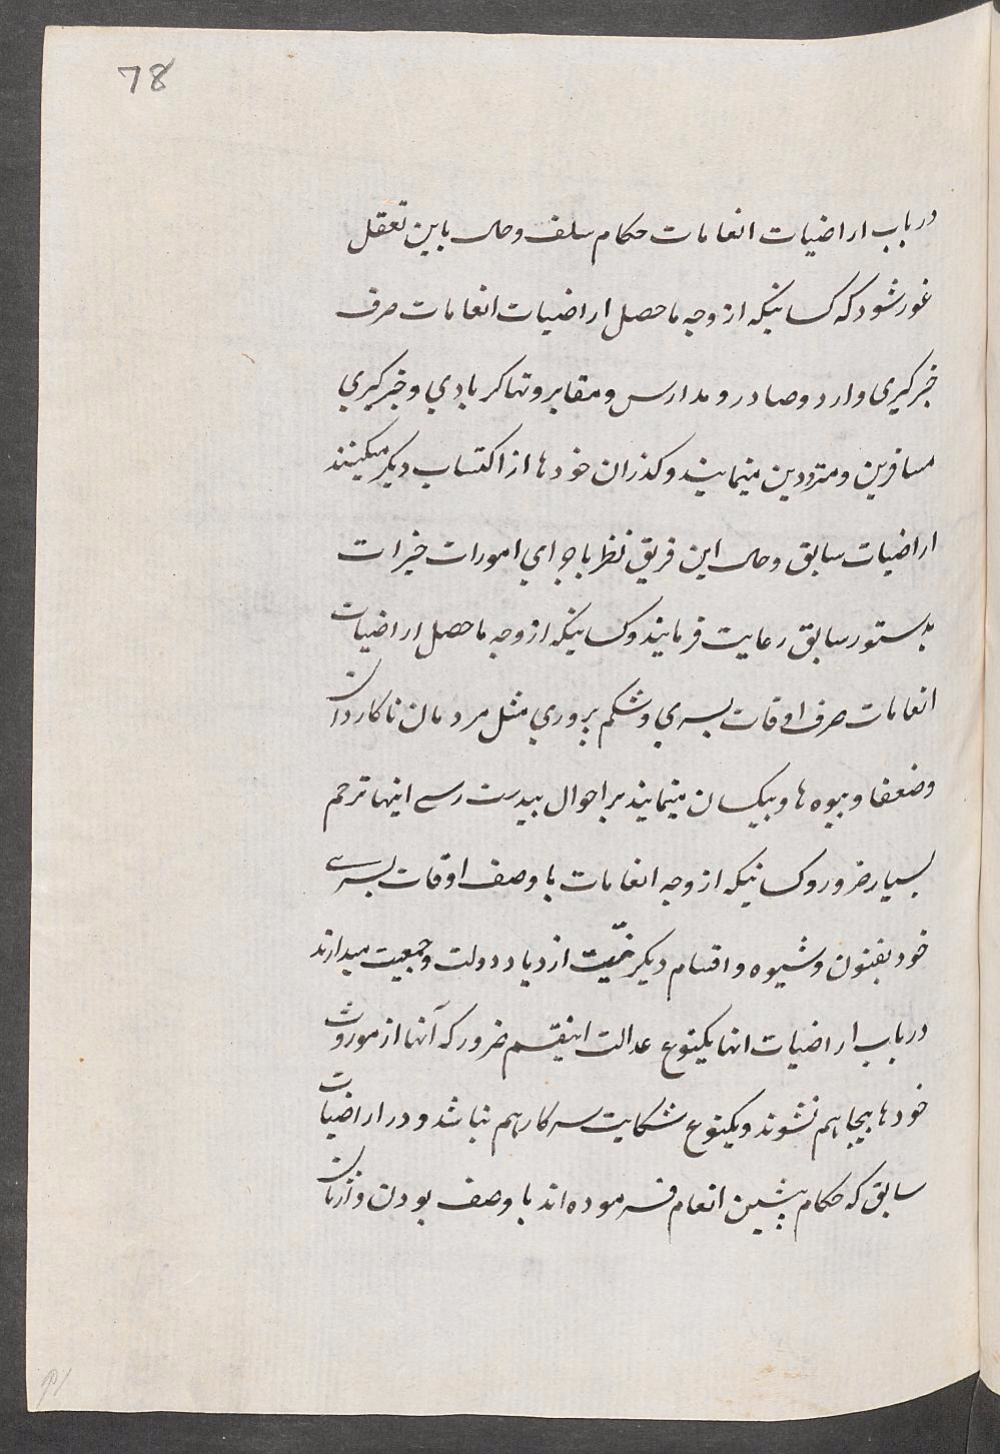 78
در باب اراضیات انعامات حکام سلف و حال باین تعقل
غور شود که کسانیکه از وجه ماحصل اراضیات انعامات صرف
خبرکیری وارد و صادر و مدارس و مقابر و تهاکر بادي و خبرکیري
مسافرین و مترددین مینمایند و کذران خودها از اکتساب دیکر میکنند
اراضیات سابق و حال این فریق نظر باجراي امورات خیرات
بدستور سابق رعایت فرمایند و کسانیکه از وجه ماحصل اراضیات
انعامات صرف اوقات بسري و شکم پروري مثل مردمان ناکاردان
و ضعفا و بیوه ها و بیکسان مینمایند بر احوال بیدست رسے اینها ترحم
بسیار ضرور و کسانیکه از وجه انعامات با وصف اوقات بسرے
خود بفنون و شیوه و اقسام دیکر ازدیاد دولت و جمعیت میدارند
در باب اراضیات انها یکنوع عدالت اینقسم ضرور که آنها از موروث
خودها بیجا هم نشوند و یکنوع شکایت سرکار هم نباشد و در اراضیات
سابق که حکام پیشین انعام فرموده اند با وصف بودن